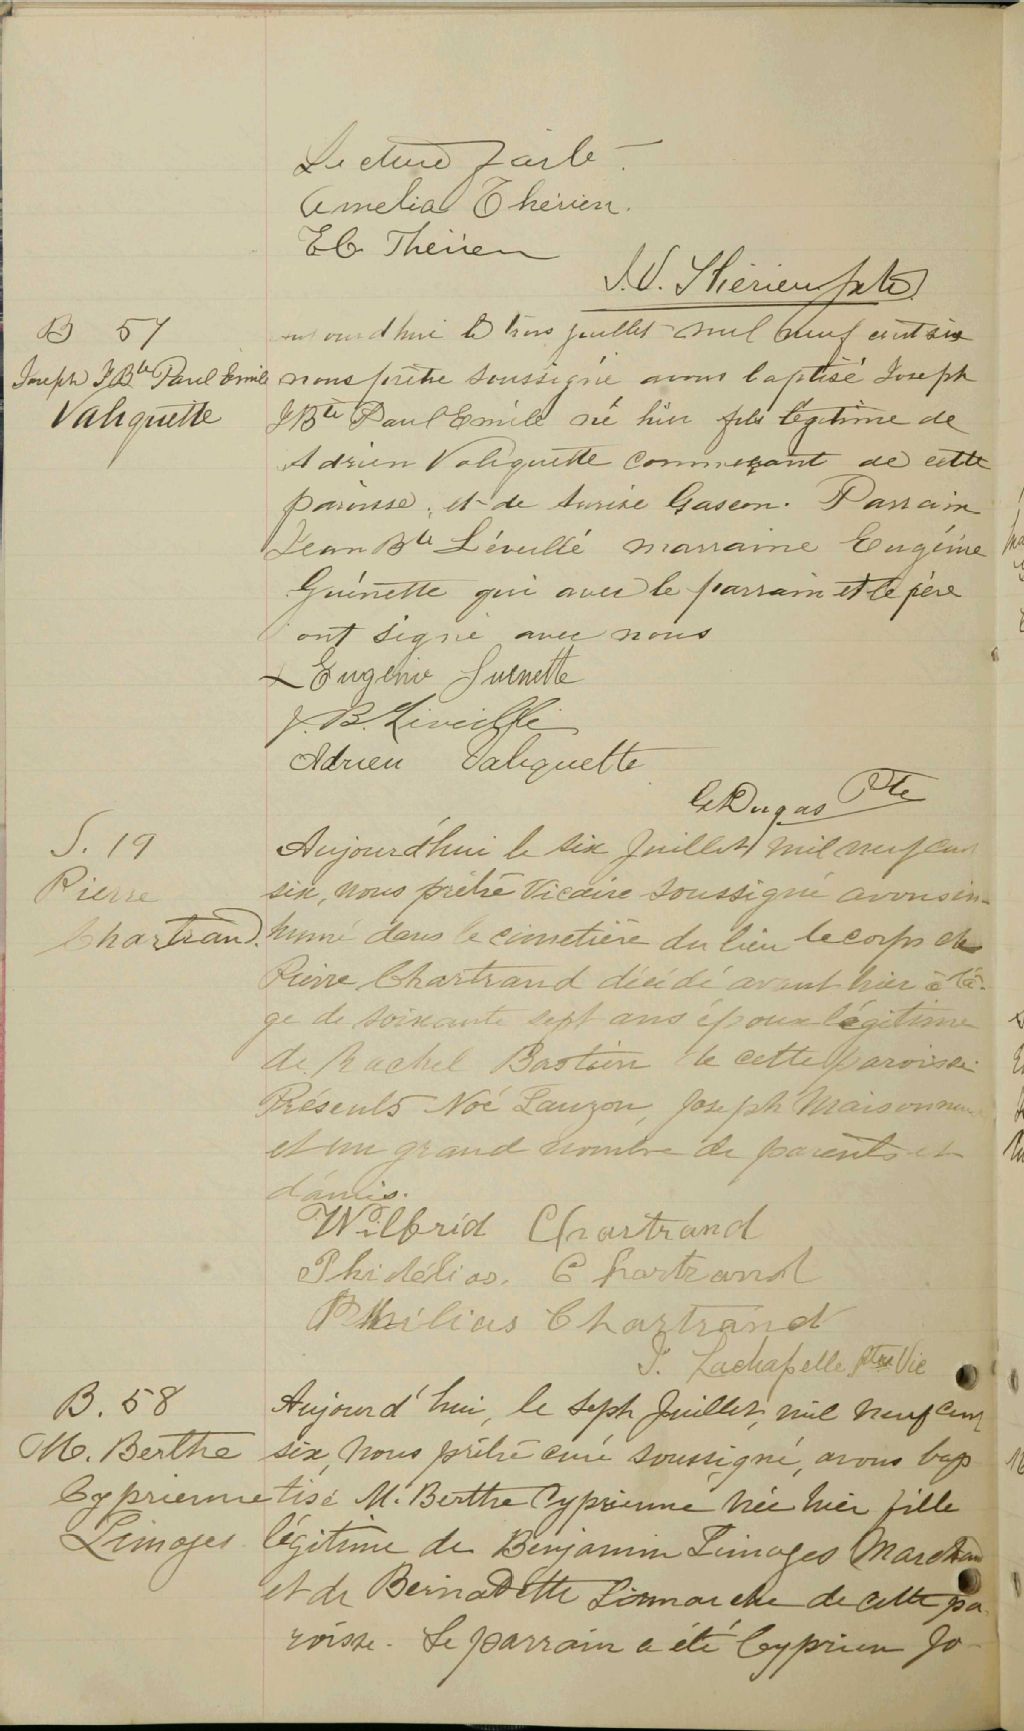 Lecture faite
Amelia Thérien.
E C Thérien
J. V. Thérien ptre
B 57
Joseph J Bte Paul Emile
Valiquette
aujourd'hui le trois juillet mil neuf cent six
nous prêtre soussigné avons baptisé Joseph
J Bte Paul Emile né hier fils légitime de
Adrien Valiquette commerçant de cette
paroisse, et de Gascon. Parrain
Jean Bte Léveillé marraine Eugénie
Guénette qui avec le parrain et le père
ont signé avec nous
Eugénie Guenette
J. B. Léveillé
Adrien Valiquette
Dugas Pte
S. 19
Pierre
Chartrand.
Aujourd'hui le six Juillet mil neuf cent
six, nous prêtre Vicaire soussigné avons in-
humé dans le cimetière du lieu le corps de
Pierre Chartrand décédé avant hier à l'â-
ge de soixante sept ans époux légitime
de Rachel Bastien de cette paroisse.
Présents Noé Lauzon, Joseph Maisonneuve
et un grand nombre de parents et
d'amis.
Wilfrid Chartrand
Phidélias. Chartrand
Philias Chartrand
J. Lachapelle ptre Vic
B. 58
M. Berthe
Cyprienne
Limoges
Aujourd'hui, le sept Juillet, mil neuf cent
six, nous prêtre curé soussigné, avons bap
tisé M. Berthe Cyprienne née hier fille
légitime de Benjamin Limoges Marchand
et de Bernadette de cette pa-
roisse. Le parrain a été Cyprien Jo-